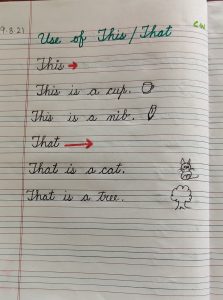 9.8.21
Use of This/That
C.W
This →
This is a cup.
This is a nib.
That →
That is a cat.
That is a tree.